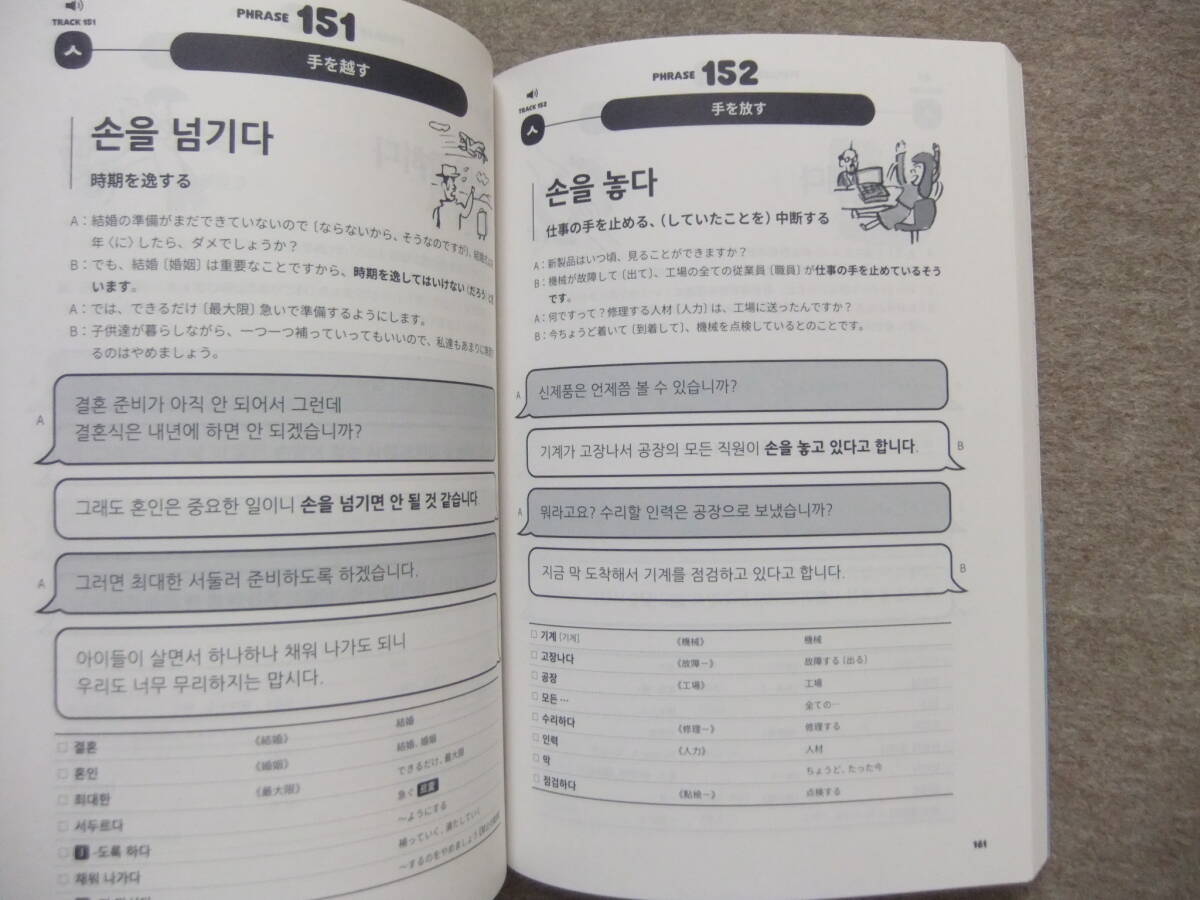 TRACK 151
PHRASE 151
ㅅ
手を越す
손을 넘기다
時期を逸する
A：結婚の準備がまだできていないので〔ならないから、そうなのですが〕、結婚式は
年〈に〉したら、ダメでしょうか？
B：でも、結婚〔婚姻〕は重要なことですから、時期を逸してはいけない〈だろう〉と
います。
A：では、できるだけ〔最大限〕急いで準備するようにします。
B：子供達が暮らしながら、一つ一つ補っていってもいいので、私達もあまりに無理
るのはやめましょう。
A
결혼 준비가 아직 안 되어서 그런데
결혼식은 내년에 하면 안 되겠습니까?
그래도 혼인은 중요한 일이니 손을 넘기면 안 될 것 같습니다
A
그러면 최대한 서둘러 준비하도록 하겠습니다.
아이들이 살면서 하나하나 채워 나가도 되니
우리도 너무 무리하지는 맙시다.
□ 결혼 《結婚》 結婚
□ 혼인 《婚姻》 結婚、婚姻
□ 최대한 《最大限》 できるだけ、最大限
□ 서두르다 急ぐ
□ -도록 하다 〜ようにする
□ 채워 나가다 補っていく、満たしていく
〜するのをやめましょう
PHRASE 152
TRACK 152
ㅅ
手を放す
손을 놓다
仕事の手を止める、（していたことを）中断する
A：新製品はいつ頃、見ることができますか？
B：機械が故障して〔出て〕、工場の全ての従業員〔職員〕が仕事の手を止めているそう
です。
A：何ですって？修理する人材〔人力〕は、工場に送ったんですか？
B：今ちょうど着いて〔到着して〕、機械を点検しているとのことです。
A
신제품은 언제쯤 볼 수 있습니까?
기계가 고장나서 공장의 모든 직원이 손을 놓고 있다고 합니다.
B
A
뭐라고요? 수리할 인력은 공장으로 보냈습니까?
지금 막 도착해서 기계를 점검하고 있다고 합니다.
B
□ 기계 [기게] 《機械》 機械
□ 고장나다 《故障－》 故障する〔出る〕
□ 공장 《工場》 工場
□ 모든 … 全ての…
□ 수리하다 《修理－》 修理する
□ 인력 《人力》 人材
□ 막 ちょうど、たった今
□ 점검하다 《點檢－》 点検する
161